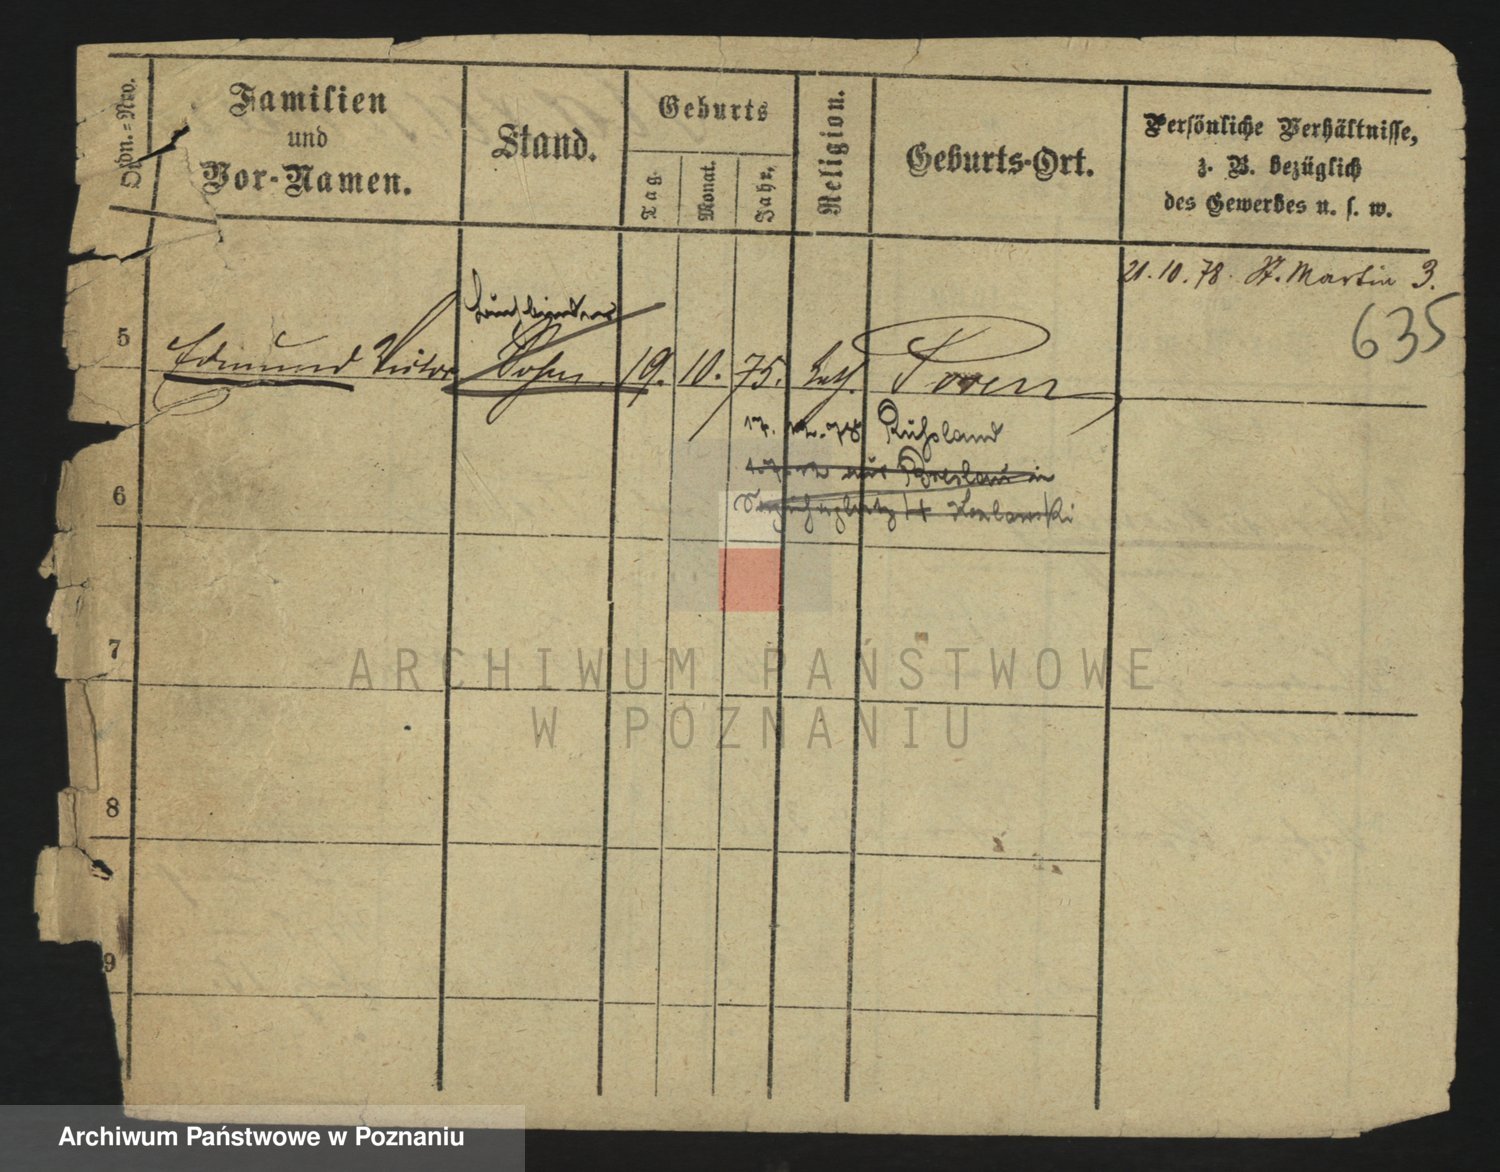 Ordn.=Nro.
Familien
und
Vor-Namen.
Stand.
Geburts
Tag.
Monat.
Jahr,
Religion.
Geburts-Ort.
Persönliche Verhältnisse,
z. B. bezüglich
des Gewerbes u. s. w.
21.10.78. St. Martin 3.
635
5
Edmund Victor Sohn 19. 10. 75. kath. Posen
17. 12. 78 Rußland
Breslau in
6
ARCHIWUM PAŃSTWOWE
W POZNANIU
7
8
9
Archiwum Państwowe w Poznaniu